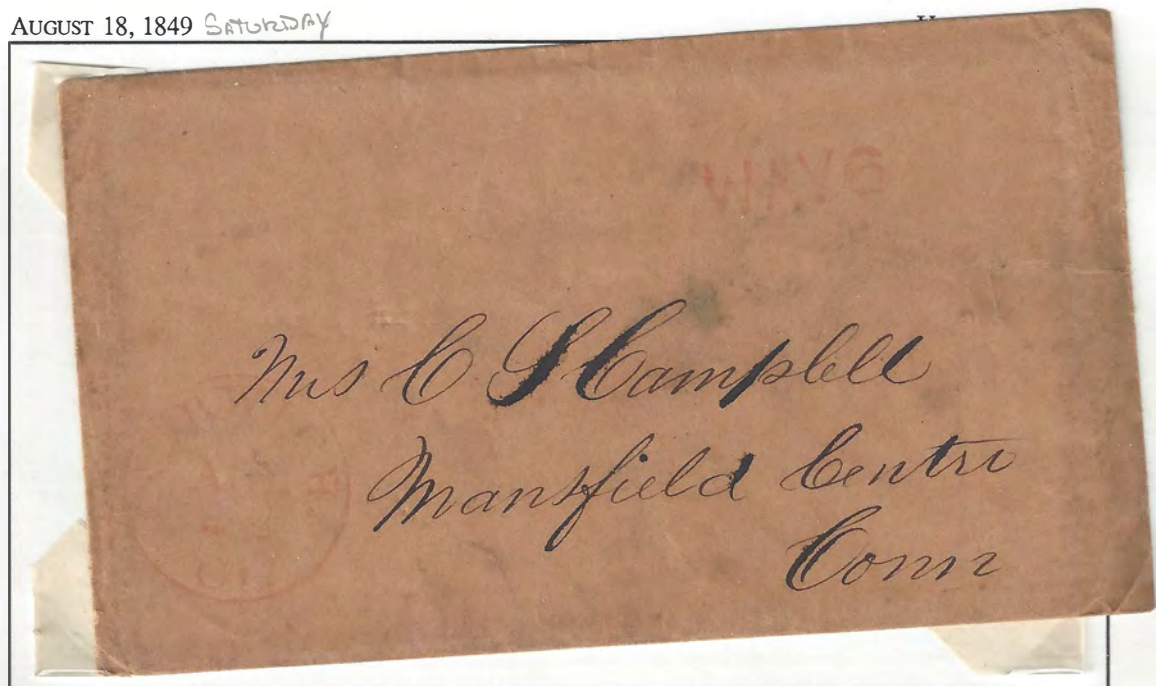 AUGUST 18, 1849 SATURDAY
Mrs C S Campbell
Mansfield Centre
Conn